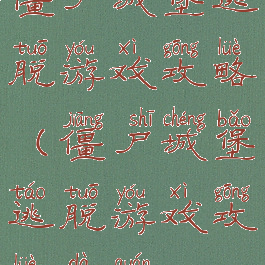 僵尸城堡逃
tuō yóu xì gōng lüè
脱游戏攻略
jiāng shī chéng bǎo
（僵尸城堡
táo tuō yóu xì gōng
逃脱游戏攻
lüè dà quán